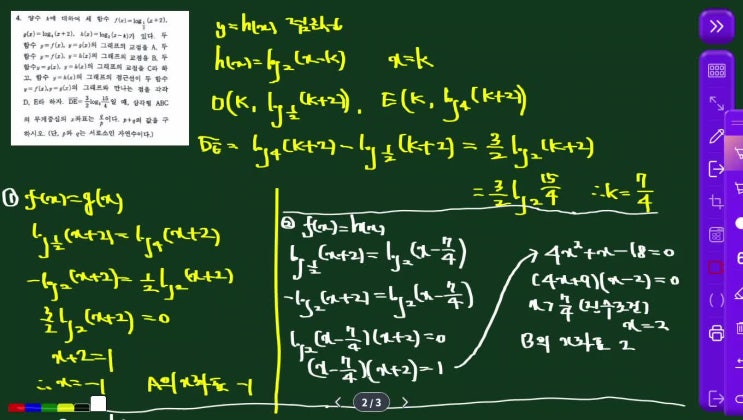 4. 양수 k에 대하여 세 함수 f(x)=log_{1/2}(x+2),
g(x)=log₄(x+2), h(x)=log₂(x-k)가 있다. 두
함수 y=f(x), y=g(x)의 그래프의 교점을 A, 두
함수 y=f(x), y=h(x)의 그래프의 교점을 B, 두
함수 y=g(x), y=h(x)의 그래프의 교점을 C라 하
고, 함수 y=h(x)의 그래프의 점근선이 두 함수
y=f(x), y=g(x)의 그래프와 만나는 점을 각각
D, E라 하자. DE=3/2 log₂ 15/4 일 때, 삼각형 ABC
의 무게중심의 x좌표는 q/p이다. p+q의 값을 구
하시오. (단, p와 q는 서로소인 자연수이다.)
y=h(x) 점근선
h(x)=log₂(x-k) x=k
D(k, log_{1/2}(k+2)), E(k, log₄(k+2))
DE = log₄(k+2) - log_{1/2}(k+2) = 3/2 log₂(k+2)
= 3/2 log₂ 15/4 ∴k= 7/4
① f(x)=g(x)
log_{1/2}(x+2)=log₄(x+2)
-log₂(x+2)=1/2 log₂(x+2)
3/2 log₂(x+2)=0
x+2=1
∴x=-1 A의 x좌표 -1
② f(x)=h(x)
log_{1/2}(x+2)=log₂(x-7/4)
-log₂(x+2)=log₂(x-7/4)
log₂(x-7/4)(x+2)=0
(x-7/4)(x+2)=1
4x²+x-18=0
(4x+9)(x-2)=0
x>7/4 (진수조건)
x=2
B의 x좌표 2
2/3